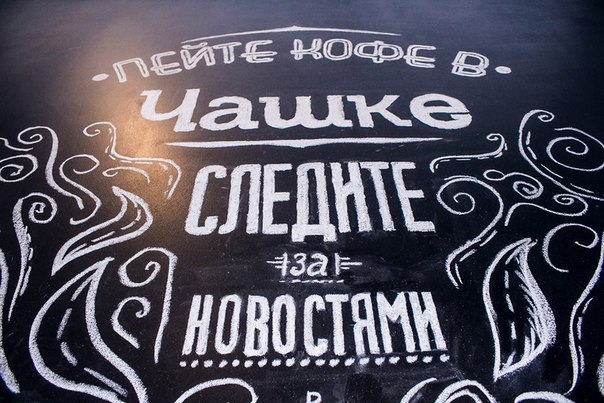 ПЕЙТЕ КОФЕ В
Чашке
СЛЕДИТЕ
за
НОВОСТЯМИ
В